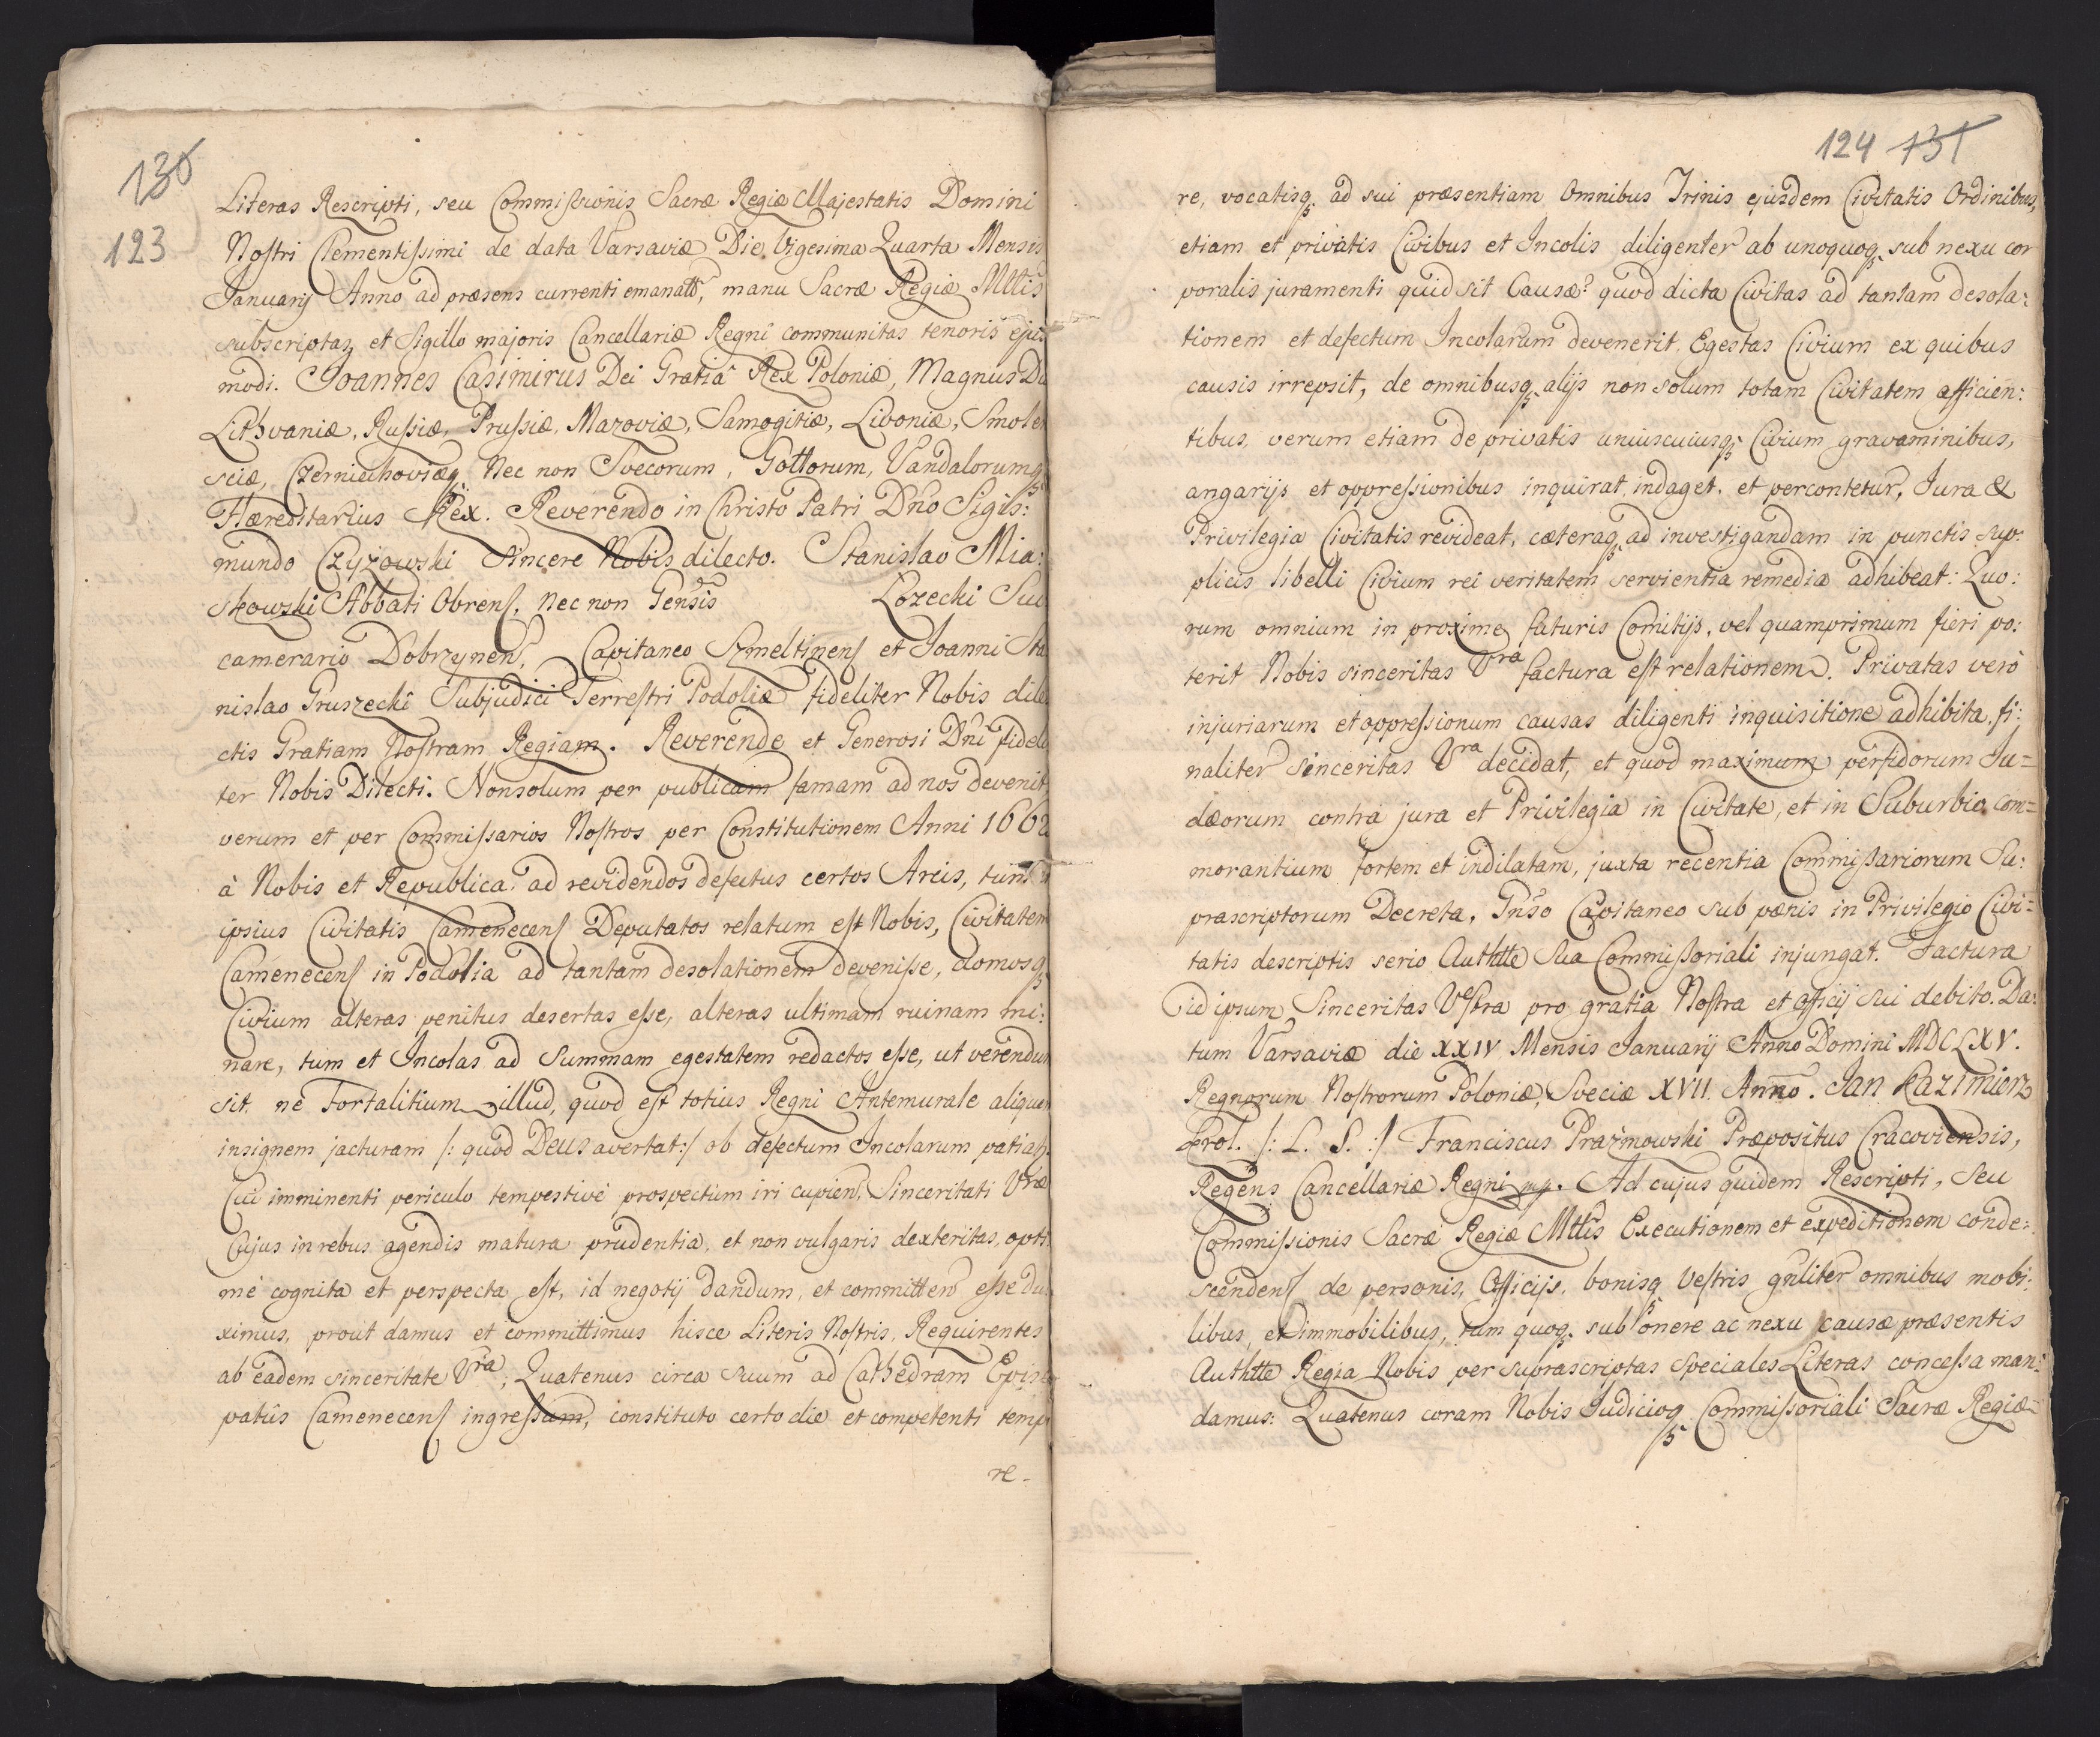 130
123
Literas Rescripti, seu Commissionis Sacræ Regiæ Majestatis Domini
Nostri Clementissimi de data Varsaviæ Die Vigesima Quarta Mensis
Januarij Anno ad præsens currenti emanatas, manu Sacræ Regiæ Mttis
subscriptas, et Sigillo majoris Cancellariæ Regni communitas tenoris ejus
modi. Joannes Casimirus Dei Gratiâ Rex Poloniæ, Magnus Du
Lithvaniæ, Russiæ, Prussiæ, Mazoviæ, Samogitiæ, Livoniæ, Smolen
sciæ, Czerniechoviæq; Nec non Svecorum, Gottorum, Vandalorumq;
Hæreditarius Rex. Reverendo in Christo Patri Dño Sigis:
mundo Czyżowski Sincere Nobis dilecto. Stanislao Mia:
skowski Abbati Obrens, nec non Gensis Łozecki Suc
camerario Dobrzynens, Capitaneo Szmeltinens et Joanni Sta
nislao Gruszecki Subjudici Terrestri Podoliæ fideliter Nobis dile
ctis Gratiam Nostram Regiam. Reverende et Generosi Dñi fideli
ter Nobis Dilecti. Nonsolum per publicam famam ad nos devenit
verum et per Commissarios Nostros per Constitutionem Anni 1662
à Nobis et Republica ad revidendos defectus certos Arcis, tum
ipsius Civitatis Camenecens Deputatos relatum est Nobis, Civitatem
Camenecens in Podolia ad tantam desolationem devenisse, domosq;
Civium alteras penitus desertas esse, alteras ultimam ruinam mi:
nare, tum et Incolas ad Summam egestatem redactos esse, ut verendum
sit. ne Fortalitium illud, quod est totius Regni Antemurale aliquem
insignem jacturam /: quod Deus avertat :/ ob defectum Incolarum patiat.
Cui imminenti periculo tempestivè prospectum iri cupien, Sinceritati Vræ
Cujus in rebus agendis matura prudentia, et non vulgaris dexteritas, opti
mè cognita et perspecta est, id negotij dandum, et committen esse du
ximus, prout damus et committimus hisce Literis Nostris, Requirentes
ab eadem sinceritate Vra, Quatenus circa suum ad Cathedram Episco
patûs Camenecens ingressum, constituto certo die et competenti tempo
re-
124 131
re, vocatisq; ad sui præsentiam Omnibus Trinis ejusdem Civitatis Ordinibus,
etiam et privatis Civibus et Incolis diligenter ab unoquoq; sub nexu cor
poralis juramenti quid sit Causæ? quod dicta Civitas ad tantam desola:
tionem et defectum Incolarum devenerit. Egestas Civium ex quibus
causis irrepsit, de omnibusq; alijs non solum totam Civitatem afficien:
tibus, verum etiam de privatis uniuscuiusq; Civium gravaminibus,
angarijs et oppressionibus inquirat, indaget, et percontetur, Jura &
Privilegia Civitatis revideat, cæteraq; ad investigandam in punctis sup:
plicis libelli Civium rei veritatem servientia remedia adhibeat: Quo:
rum omnium in proxime futuris Comitijs, vel quamprimum fieri po:
terit Nobis sinceritas Vra factura est relationem. Privatas verò
injuriarum et oppressionum causas diligenti inquisitione adhibita, fi:
naliter sinceritas Vra decidat, et quod maximum perfidorum Ju=
dæorum contra jura et Privilegia in Civitate, et in Suburbio com=
morantium fortem et indilatam, juxta recentia Commissariorum Su:
prascriptorum Decreta, Gnso Capitaneo sub pænis in Privilegio Civi=
tatis descriptis serio Authtte Sua Commissoriali injungat. Factura
id ipsum Sinceritas Vestra pro gratia Nostra et officij sui debito. Da:
tum Varsaviæ die XXIV Mensis Januarij Anno Domini MDCLXV.
Regnorum Nostrorum Poloniæ, Sveciæ XVII. Anno. Jan Kazimierz
Krol. /: L. S. :/ Franciscus Prażmowski Præpositus Cracoviensis,
Regens Cancellariæ Regni mp. Ad cujus quidem Rescripti, seu
Commissionis Sacræ Regiæ Mttis Executionem et expeditionem conde:
scendens de personis, Officijs, bonisq; Vestris gnliter omnibus mobi:
libus, et immobilibus, tum quoq; sub onere ac nexu causæ præsentis
Authtte Regia Nobis per suprascriptas Speciales Literas concessa man:
damus: Quatenus coram Nobis Judicioq; Commissoriali Sacræ Regiæ